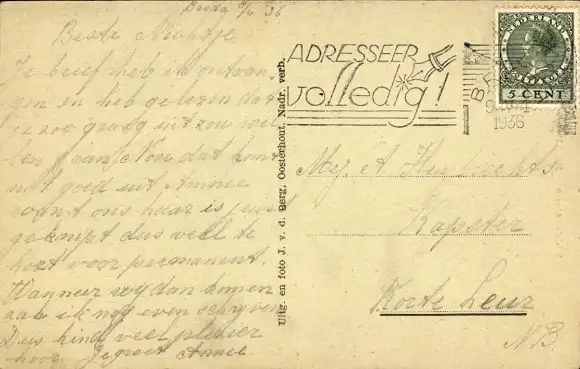 Breda 9/4 '36
Beste Niontje
Je brief heb ik ontvan-
gen en heb gelezen dat
je zoo graag uit zou wil-
len gaan. Nou dat komt
niet goed uit Annie
want ons haar is juist
geknipt dus veel te
kort voor permanent.
Wanneer wij dan komen
zal ik nog even schrijven
Dus kind veel plezier
hoor. Gegroet Annie
Uitg. en foto J. v. d. Berg, Oosterhout, Nadr. verb.
ADRESSEER
volledig!
1936
NEDERLAND
5 CENT
Mej. A
Kapster
Korte Leur
N B